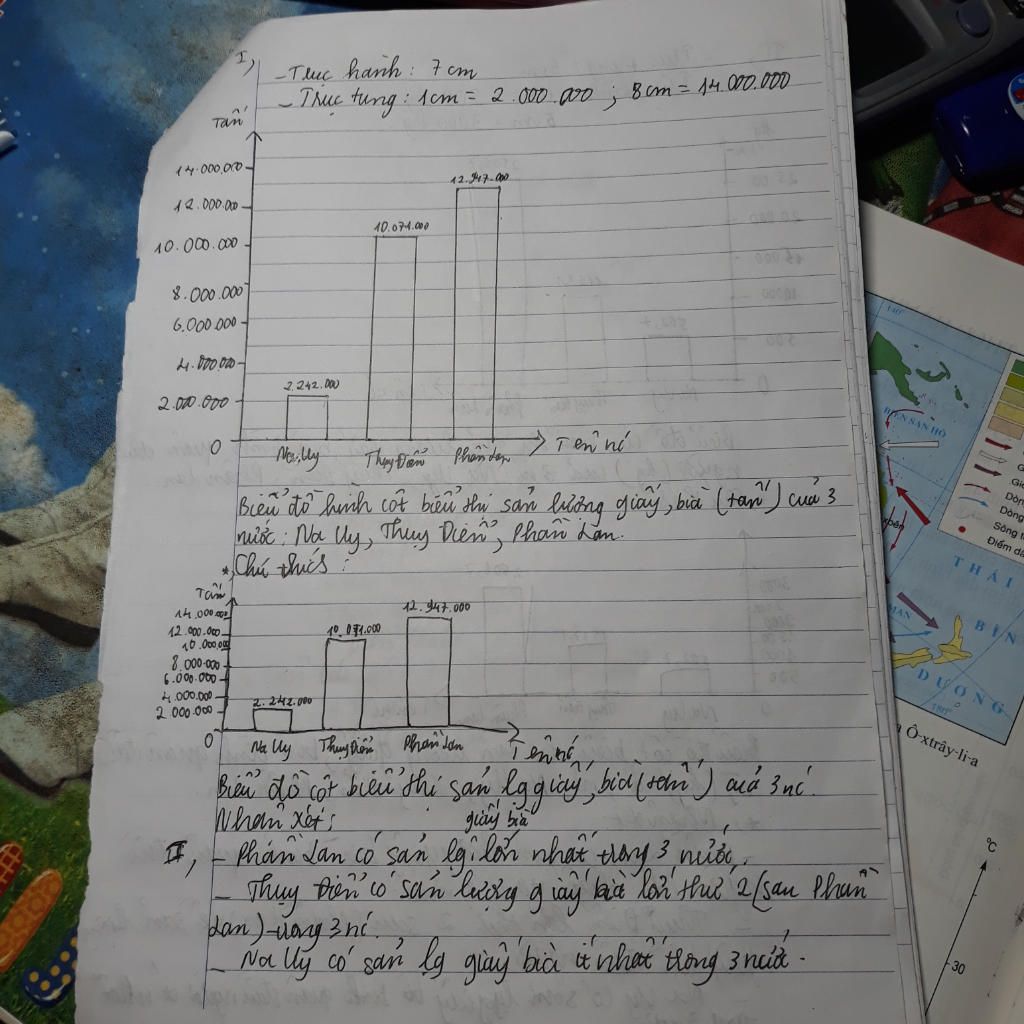 I,
- Trục hành: 7cm
- Trục tung: 1cm = 2.000.000 ; 8cm = 14.000.000
Tấn
14.000.000
12.000.000
10.000.000
8.000.000
6.000.000
4.000.000
2.000.000
0
2.242.000
10.071.000
12.947.000
Na Uy Thụy Điển Phần Lan Tên nc
Biểu đồ hình cột biểu thị sản lượng giấy, bìa (tấn) của 3
nước: Na Uy, Thụy Điển, Phần Lan.
* Chú thích:
Tấn
14.000.000
12.000.000
10.000.000
8.000.000
6.000.000
4.000.000
2.000.000
0
2.242.000
10.071.000
12.947.000
Na Uy Thụy Điển Phần Lan Tên nc
Biểu đồ cột biểu thị sản lg giấy, bìa (tấn) của 3 nc.
Nhận xét:
giấy bìa
II, - Phần Lan có sản lg lớn nhất trong 3 nước.
- Thụy Điển có sản lượng giấy bìa lớn thứ 2 (sau Phần
Lan) trong 3 nc.
- Na Uy có sản lg giấy bìa ít nhất trong 3 nước.
140°
BIỂN SAN HÔ
Dòng
Dòng
Sông
Điểm
THÁI
BÌN
DƯƠNG
180°
Ô-xtrây-li-a
°C
30